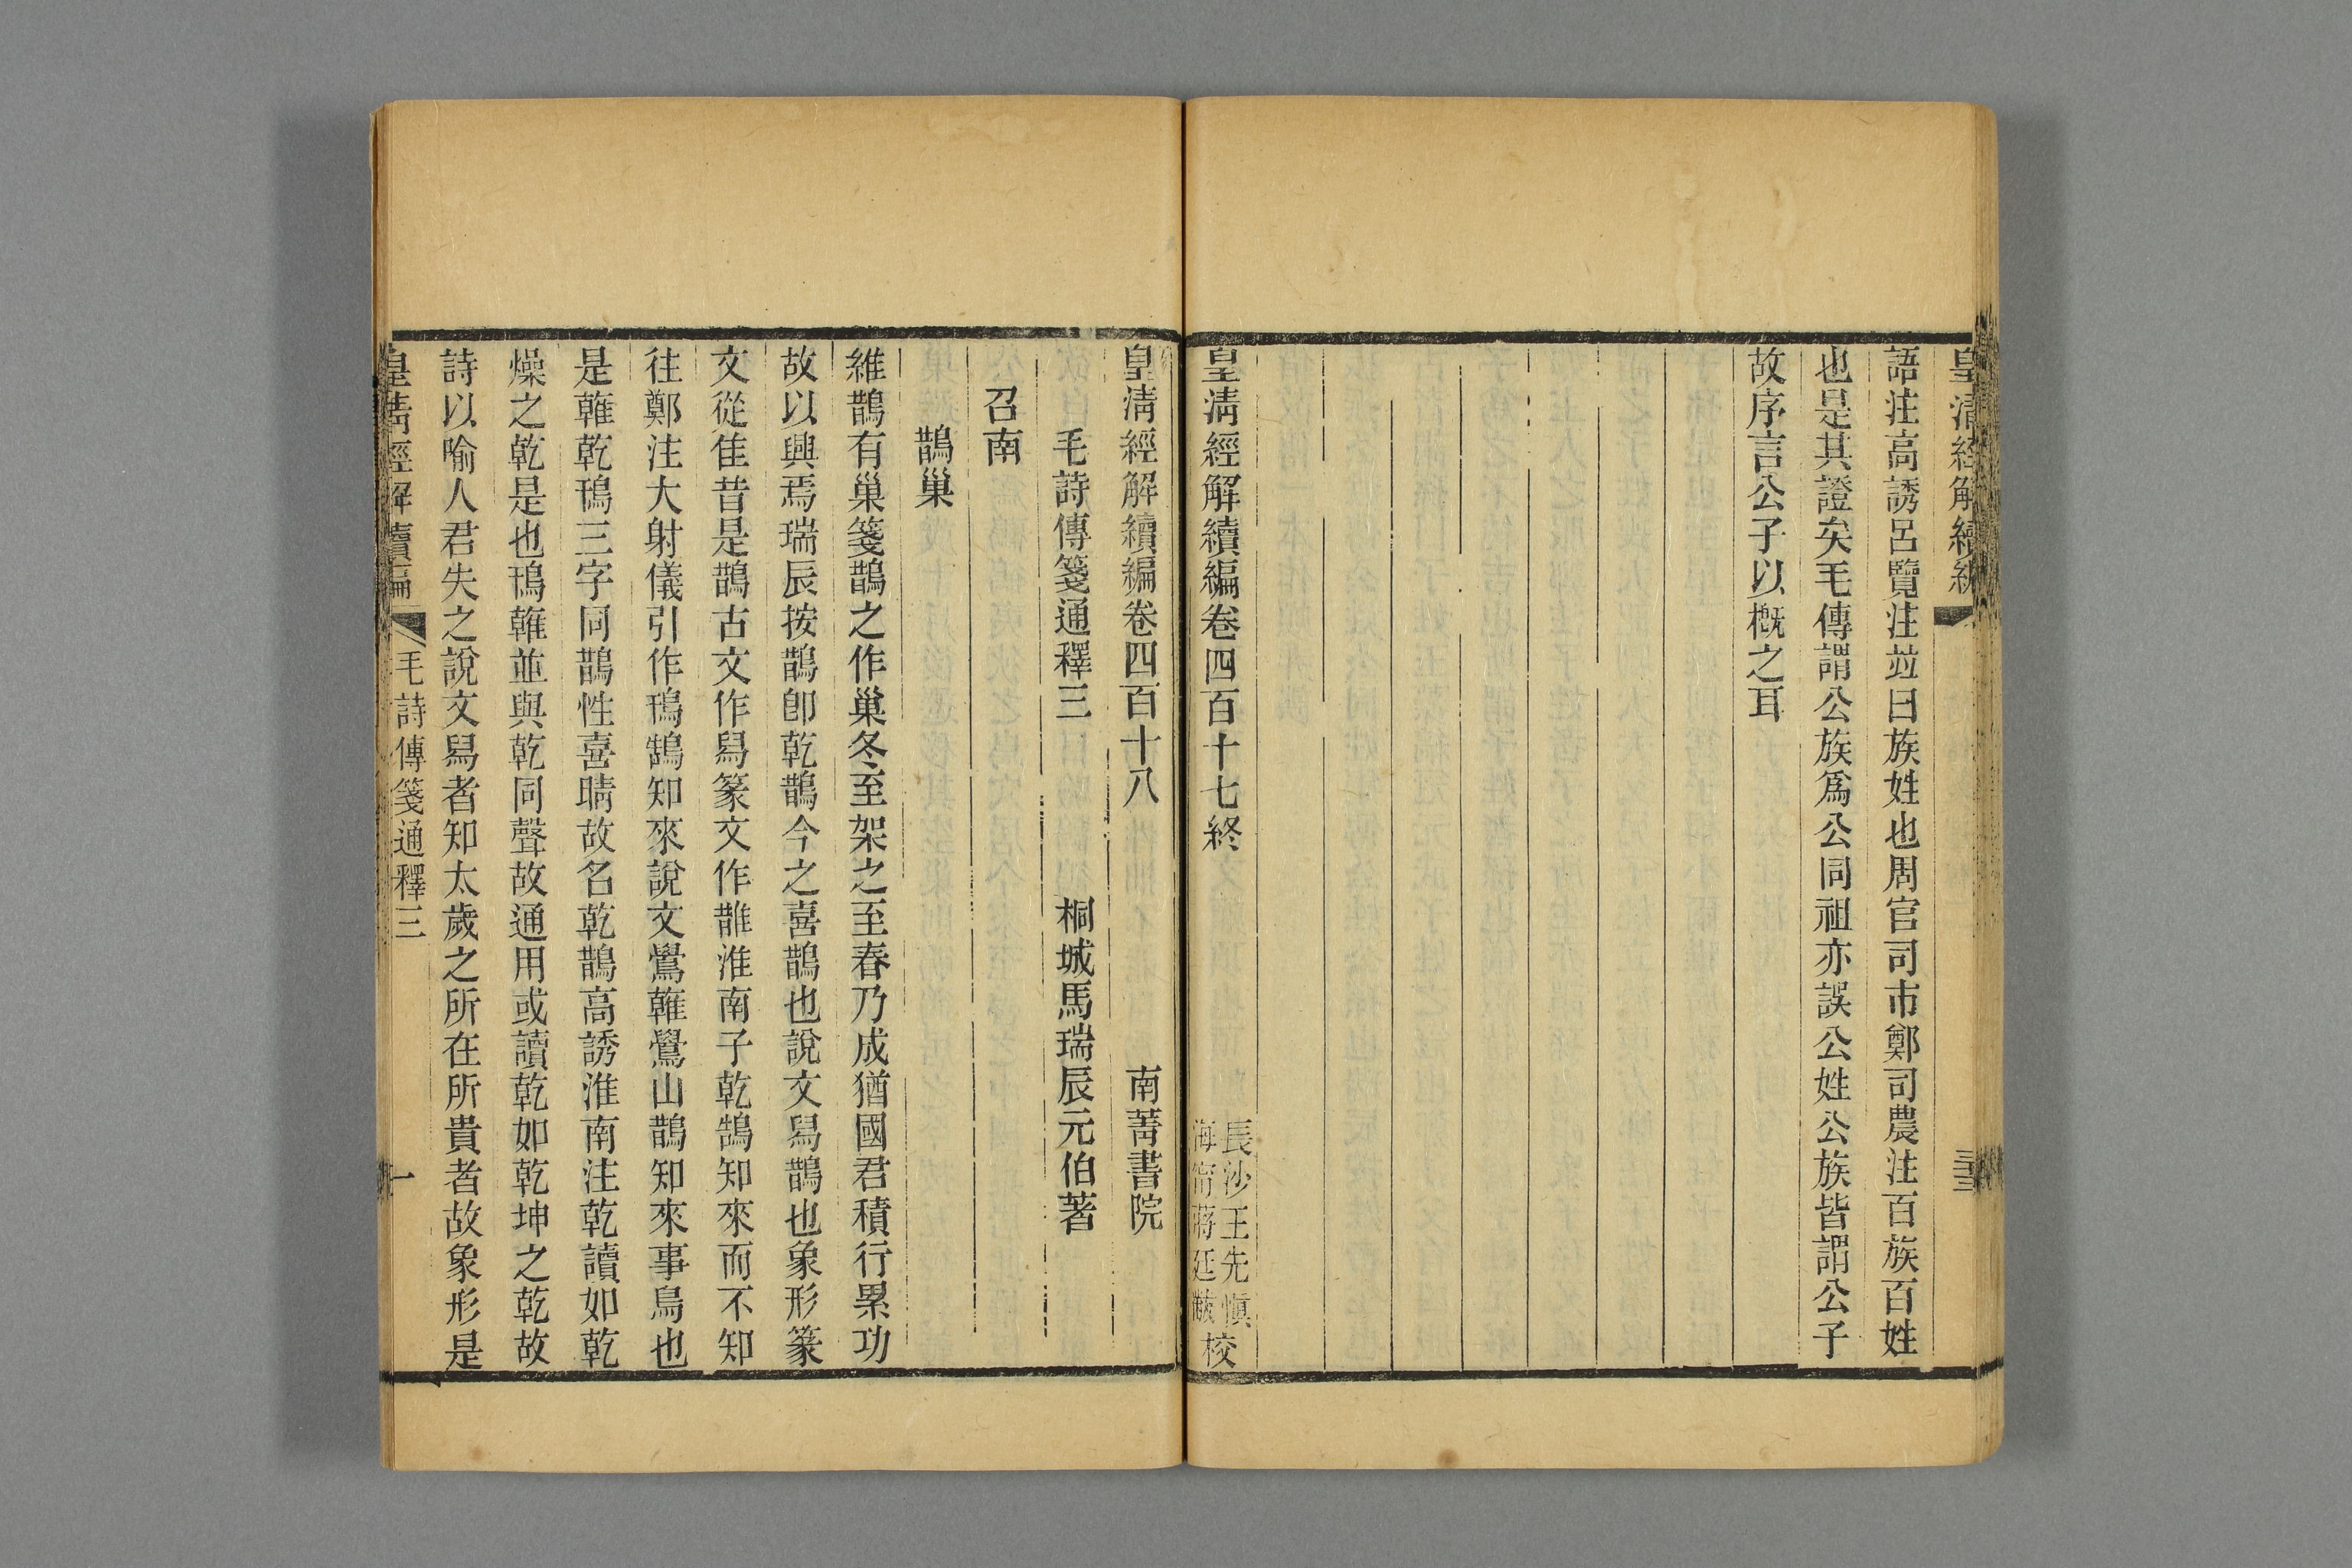 皇清經解續編
三三
語注高誘呂覽注竝曰族姓也周官司市鄭司農注百族百姓
也是其證矣毛傳謂公族爲公同祖亦誤公姓公族皆謂公子
故序言公子以槪之耳
皇清經解續編卷四百十七終
長沙王先愼
海甯蔣廷黻
校
皇清經解續編卷四百十八
南菁書院
毛詩傳箋通釋三
桐城馬瑞辰元伯著
召南
鵲巢
維鵲有巢箋鵲之作巢冬至架之至春乃成猶國君積行累功
故以興焉瑞辰按鵲卽乾鵲今之喜鵲也說文舃鵲也象形篆
文從隹昔是鵲古文作舃篆文作誰淮南子乾鵠知來而不知
往鄭注大射儀引作鳱鵠知來說文鷽雗鷽山鵲知來事鳥也
是雗乾鳱三字同鵲性喜晴故名乾鵲高誘淮南注乾讀如乾
燥之乾是也鳱雗並與乾同聲故通用或讀乾如乾坤之乾故
詩以喻人君失之說文舃者知太歲之所在所貴者故象形是
皇清經解續編
毛詩傳箋通釋三
一